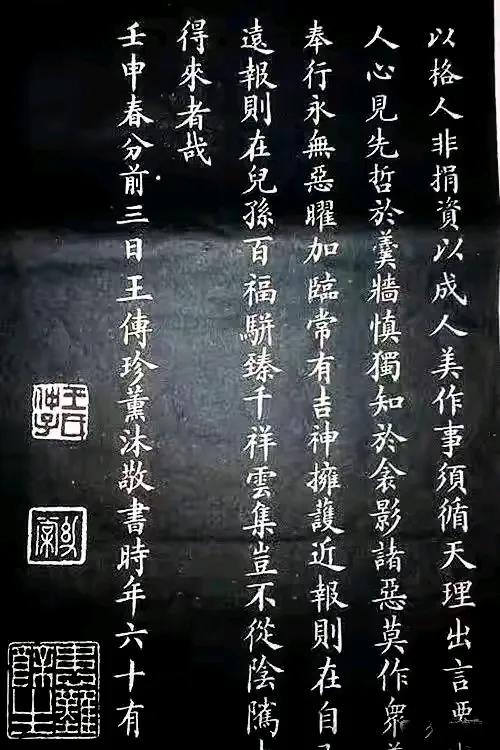 以格人非捐資以成人美作事須循天理出言要
人心見先哲於羹牆慎獨知於衾影諸惡莫作衆
奉行永無惡曜加臨常有吉神擁護近報則在自
遠報則在兒孫百福駢臻千祥雲集豈不從陰隲
得來者哉
壬申春分前三日王傳珍薰沐敬書時年六十有